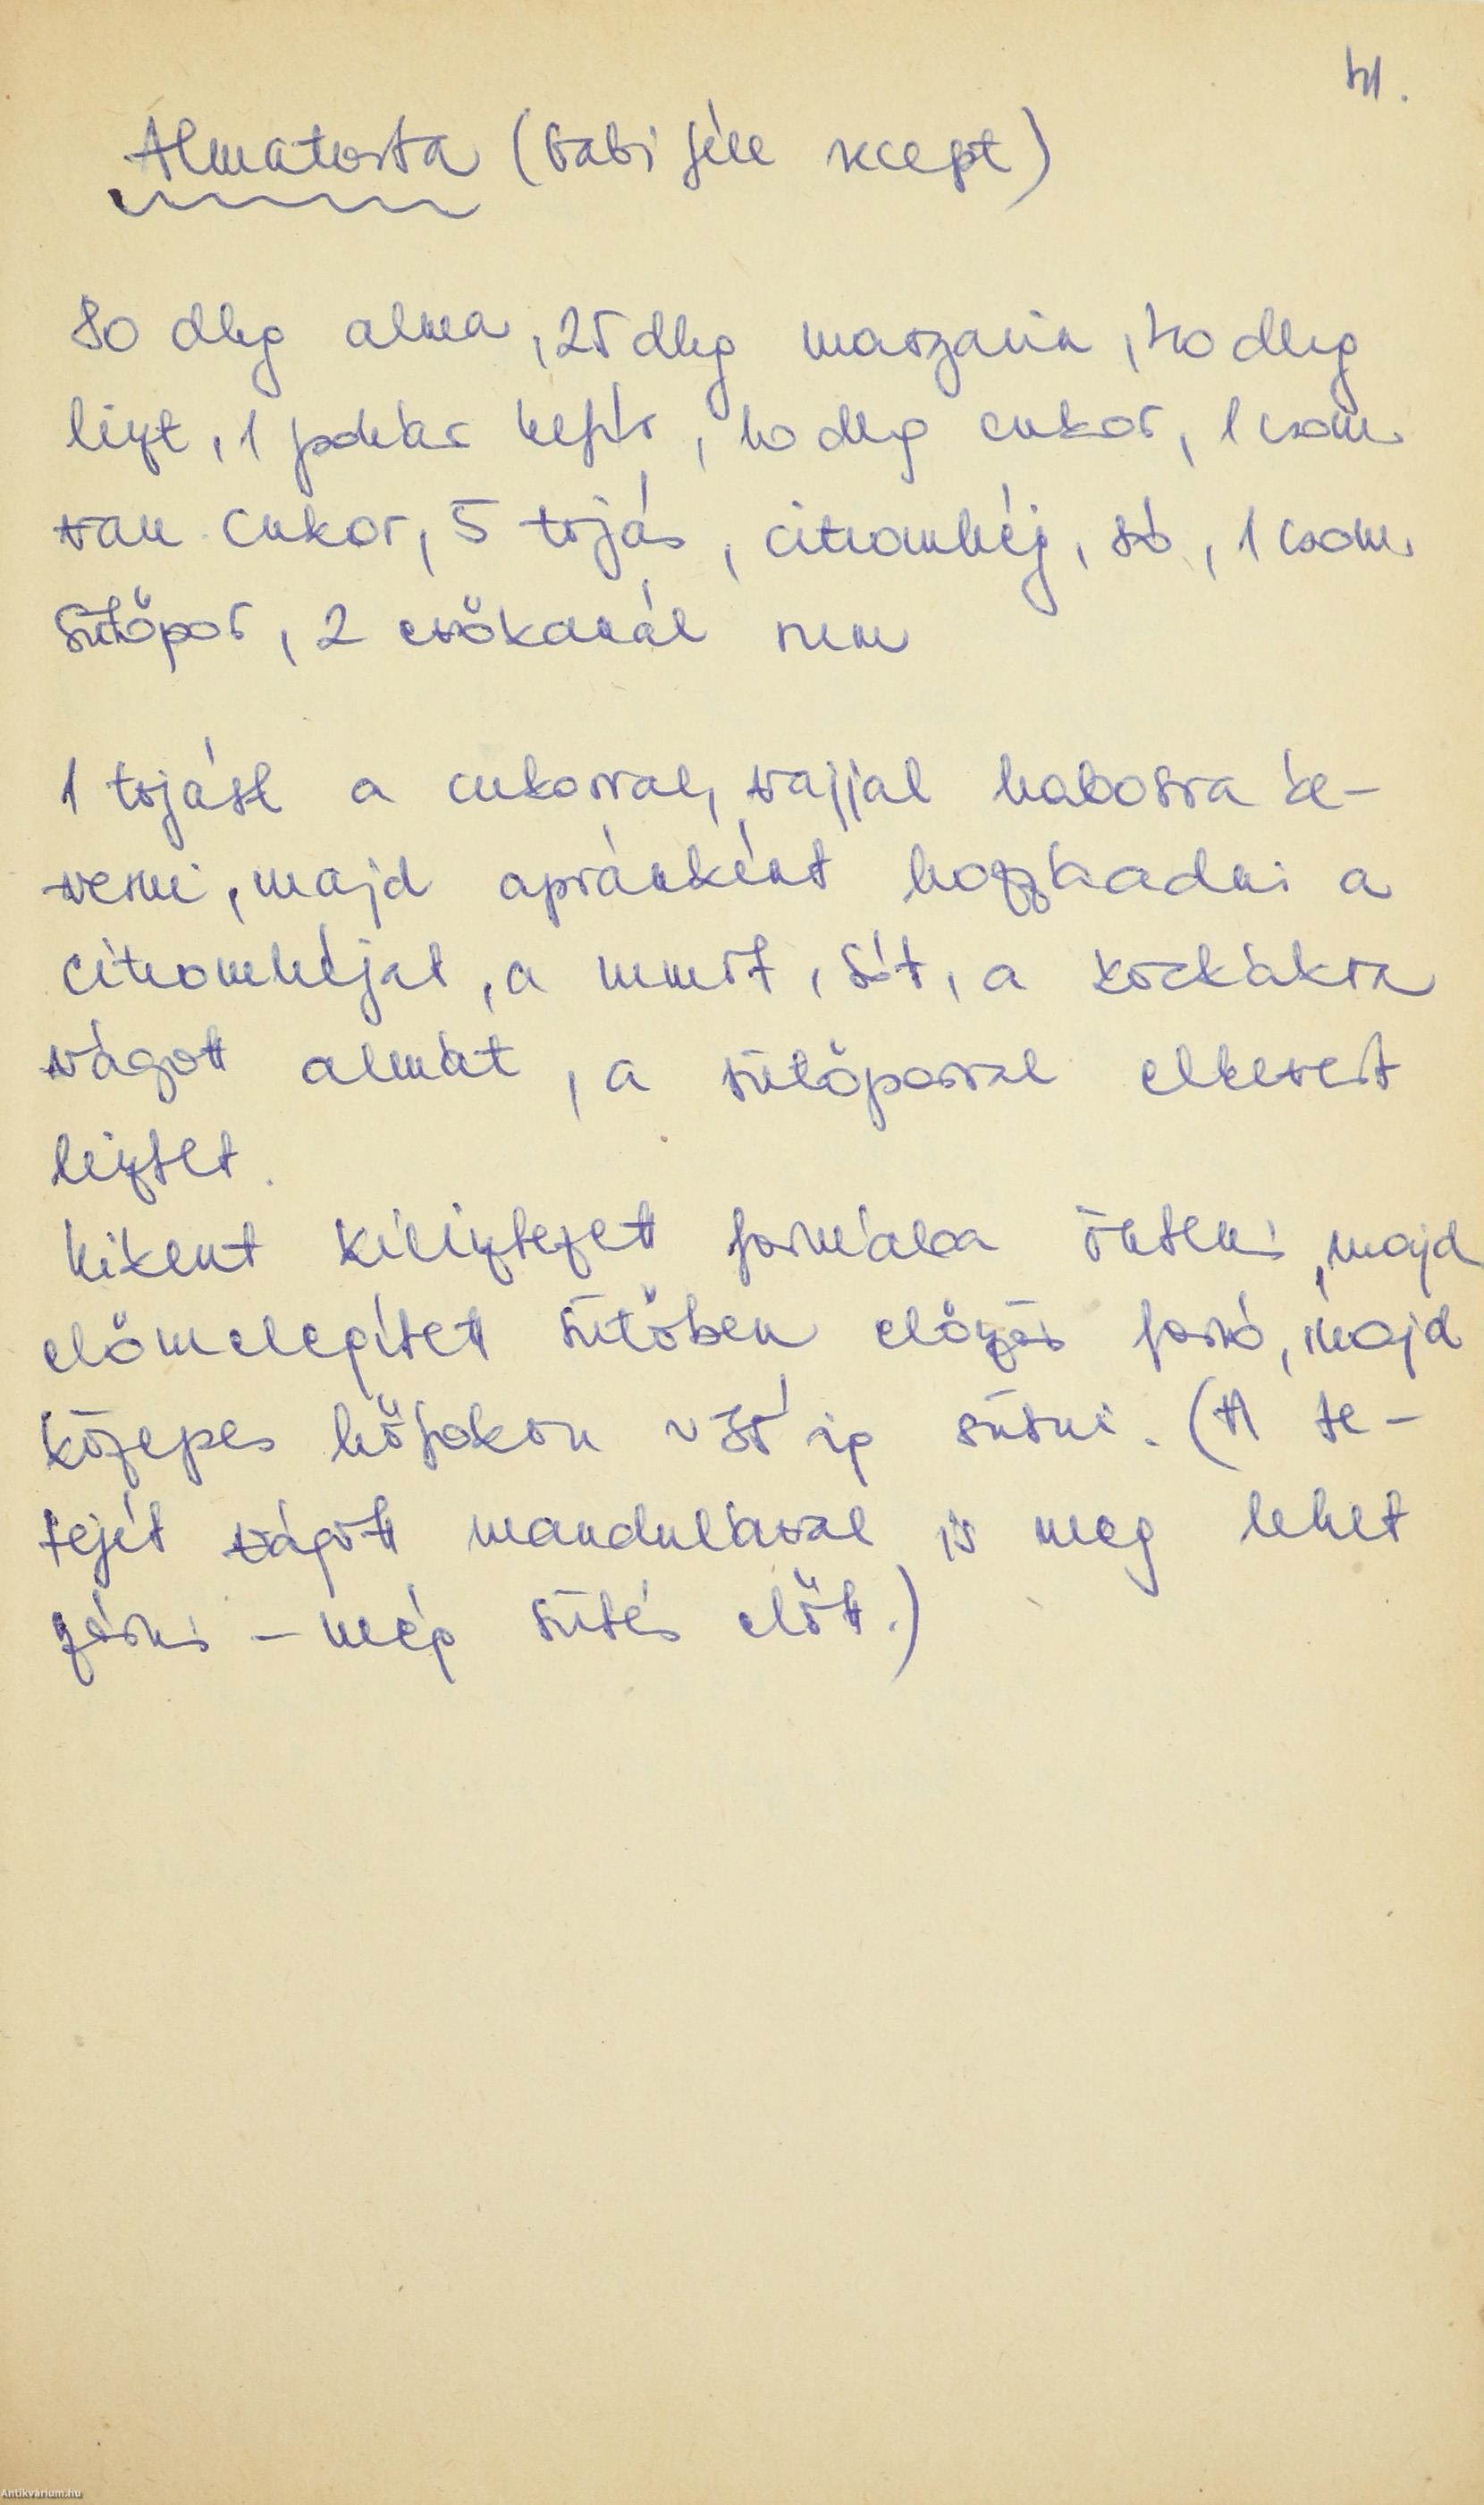 41.
Almatorta (Gabi féle recept)
80 dkg alma, 25 dkg margarin, 40 dkg
liszt, 1 pohár kefír, 40 dkg cukor, 1 csom
van. cukor, 5 tojás, citromhéj, só, 1 csom.
sütőpor, 2 evőkanál rum
1 tojást a cukorral, vajjal habosra ke-
verni, majd apránként hozzáadni a
citromhéjat, a rumot, sót, a kockákra
vágott almát, a sütőporral elkevert
lisztet.
Kikent kilisztezett formába önteni, majd
előmelegített sütőben először forró, majd
közepes hőfokon ~ 35' ig sütni. (A te-
tejét vágott mandulával is meg lehet
szórni - még sütés előtt.)
Antikvárium.hu